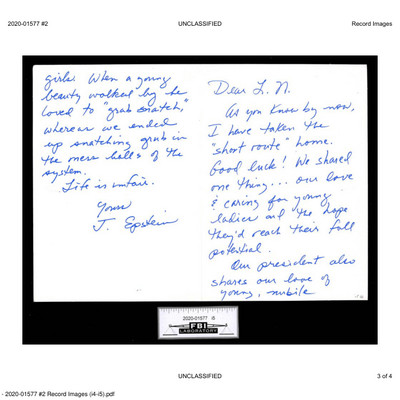 2020-01577 #2
UNCLASSIFIED
Record Images
Dear L. N.
As you know by now,
I have taken the
"short route" home.
Good luck! We shared
one thing... our love
& caring for young
ladies and the hope
they'd reach their full
potential.
Our president also
shares our love of
young, nubile
girls. When a young
beauty walked by he
loved to "grab snatch,"
whereas we ended
up snatching grub in
the mess halls of the
system.
Life is unfair.
Yours
J. Epstein
2020-01577 i5
FBI
LABORATORY
UNCLASSIFIED
3 of 4
- 2020-01577 #2 Record Images (i4-i5).pdf